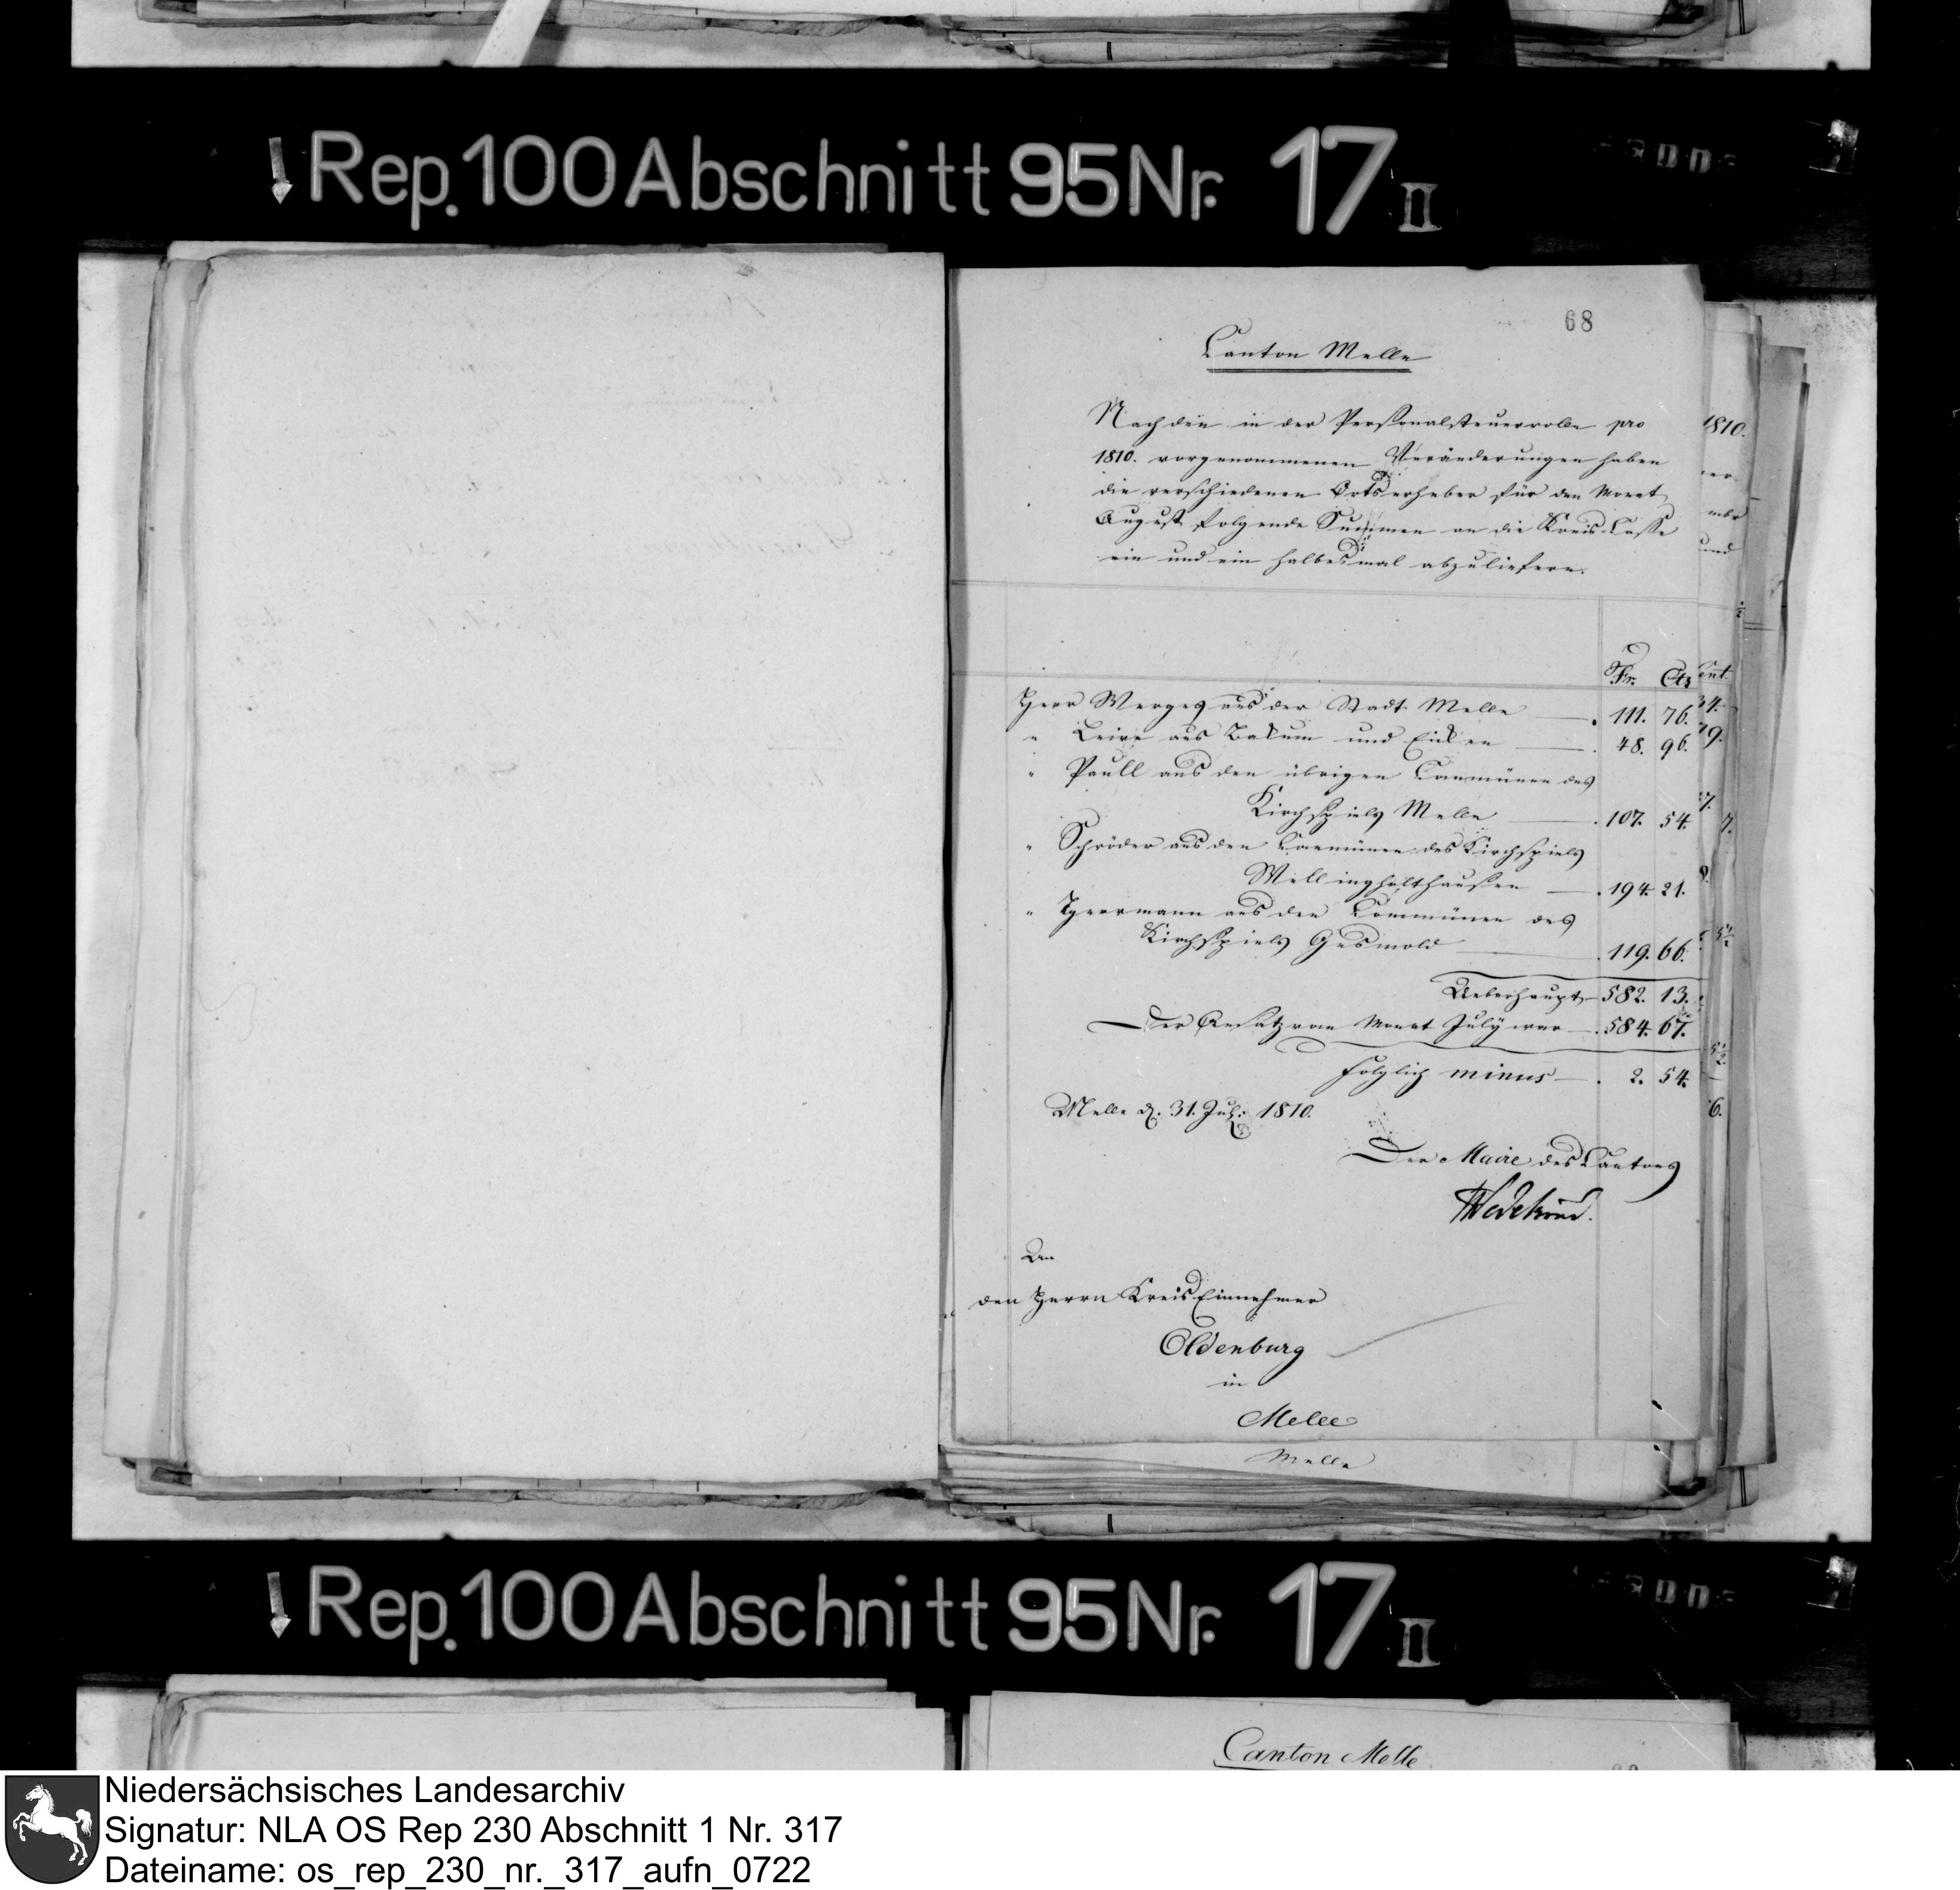 Rep. 100 Abschnitt 95 Nr. 17 II
68
Canton Melle
Nach den in der Personalsteuerrolle pro
1810. vorgenommenen Veränderungen haben
die verschiedenen Ortserheber für den Monat
August folgende Summen an die Kreis-Casse
ein und ein halbes mal abzuliefern.
Fr. Cts
Herr Werges aus der Stadt Melle 111. 76.
" aus Bakum und Eicken 48. 96.
" Paull aus den übrigen Communen des
Kirchspiels Melle 107. 54.
" Schröder aus den Communen des Kirchspiels
Wellingholthausen 194. 21.
" aus den Communen des
Kirchspiels Gesmold 119. 66.
Ueberhaupt 582. 13.
Der Ansatz vom Monat July war 584. 67.
folglich minus 2. 54.
Melle d. 31. Jul. 1810.
Der Maire des Cantons
An
den Herrn Kreis Einnehmer
Oldenburg
in
Melle
Melle
1810.
Rep. 100 Abschnitt 95 Nr. 17 II
Canton Melle
Niedersächsisches Landesarchiv
Signatur: NLA OS Rep 230 Abschnitt 1 Nr. 317
Dateiname: os_rep_230_nr._317_aufn_0722